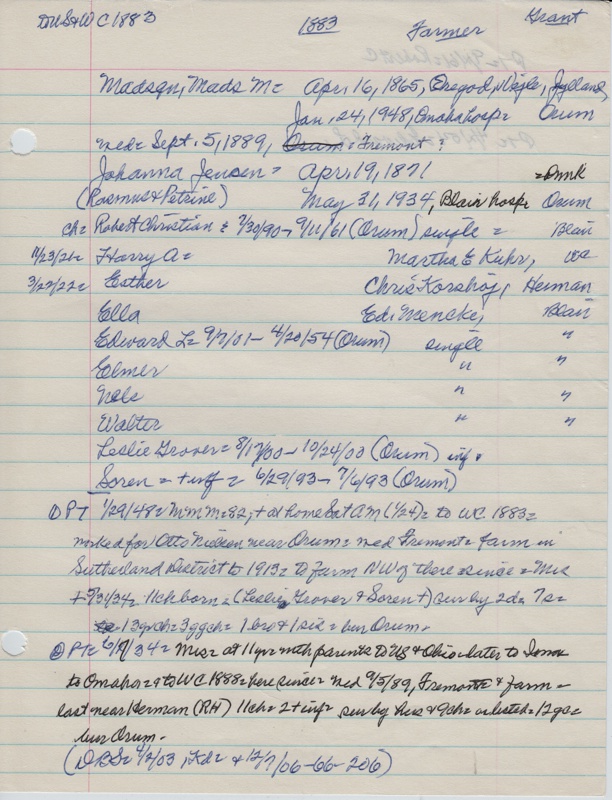 DUS&WC 1883 1883 Farmer Grant
Madsen, Mads M = Apr. 16, 1865, Oregod, Vejle, Jylland,
Jan. 24, 1948, Omaha hosp = Orum
med = Sept. 5, 1889, Orum = Fremont =
Johanna Jensen = Apr. 19, 1871 = Dnnk
(Rasmus & Petrine) May 31, 1934, Blair hosp = Orum
ch = Robert Christian = 7/30/90 - 9/11/61 (Orum) single = Blair
11/23/21 = Harry A = Martha E Kuhr, WC
3/22/22 = Esther Chris Korshoj, Herman
Ella Ed. Mencke, Blair
Edward L = 9/7/01 - 4/20/54 (Orum) single "
Elmer " "
Nels " "
Walter " "
Leslie Grover = 8/17/00 - 10/24/03 (Orum) inf &
Soren = + inf = 6/29/93 - 7/6/93 (Orum)
① PT 1/29/48 = MMM = 82, + at home Sat AM (1/24) = to WC 1883 =
worked for Otto Nielsen near Orum = med Fremont = farm in
Sutherland District to 1913 = to farm NW of there since = Mrs
+ 5/31/34 = 11ch born = (Leslie Grover & Soren +) sur by 2d = 7s =
13gch = 3ggch = 1 bro & 1 sis = bur Orum -
② PT = 6/7/34 = Mrs = at 11yr with parents to US & Ohio = later to Iowa
to Omaha = to WC 1888 = here since = med 9/5/89, Fremont & farm =
last near Herman (RH) 11ch = 2 + inf = sur by hus & 9ch = as listed = 12gc =
bur Orum -
(DBS = 4/2/03, Kd = & 12/7/06-66-206)